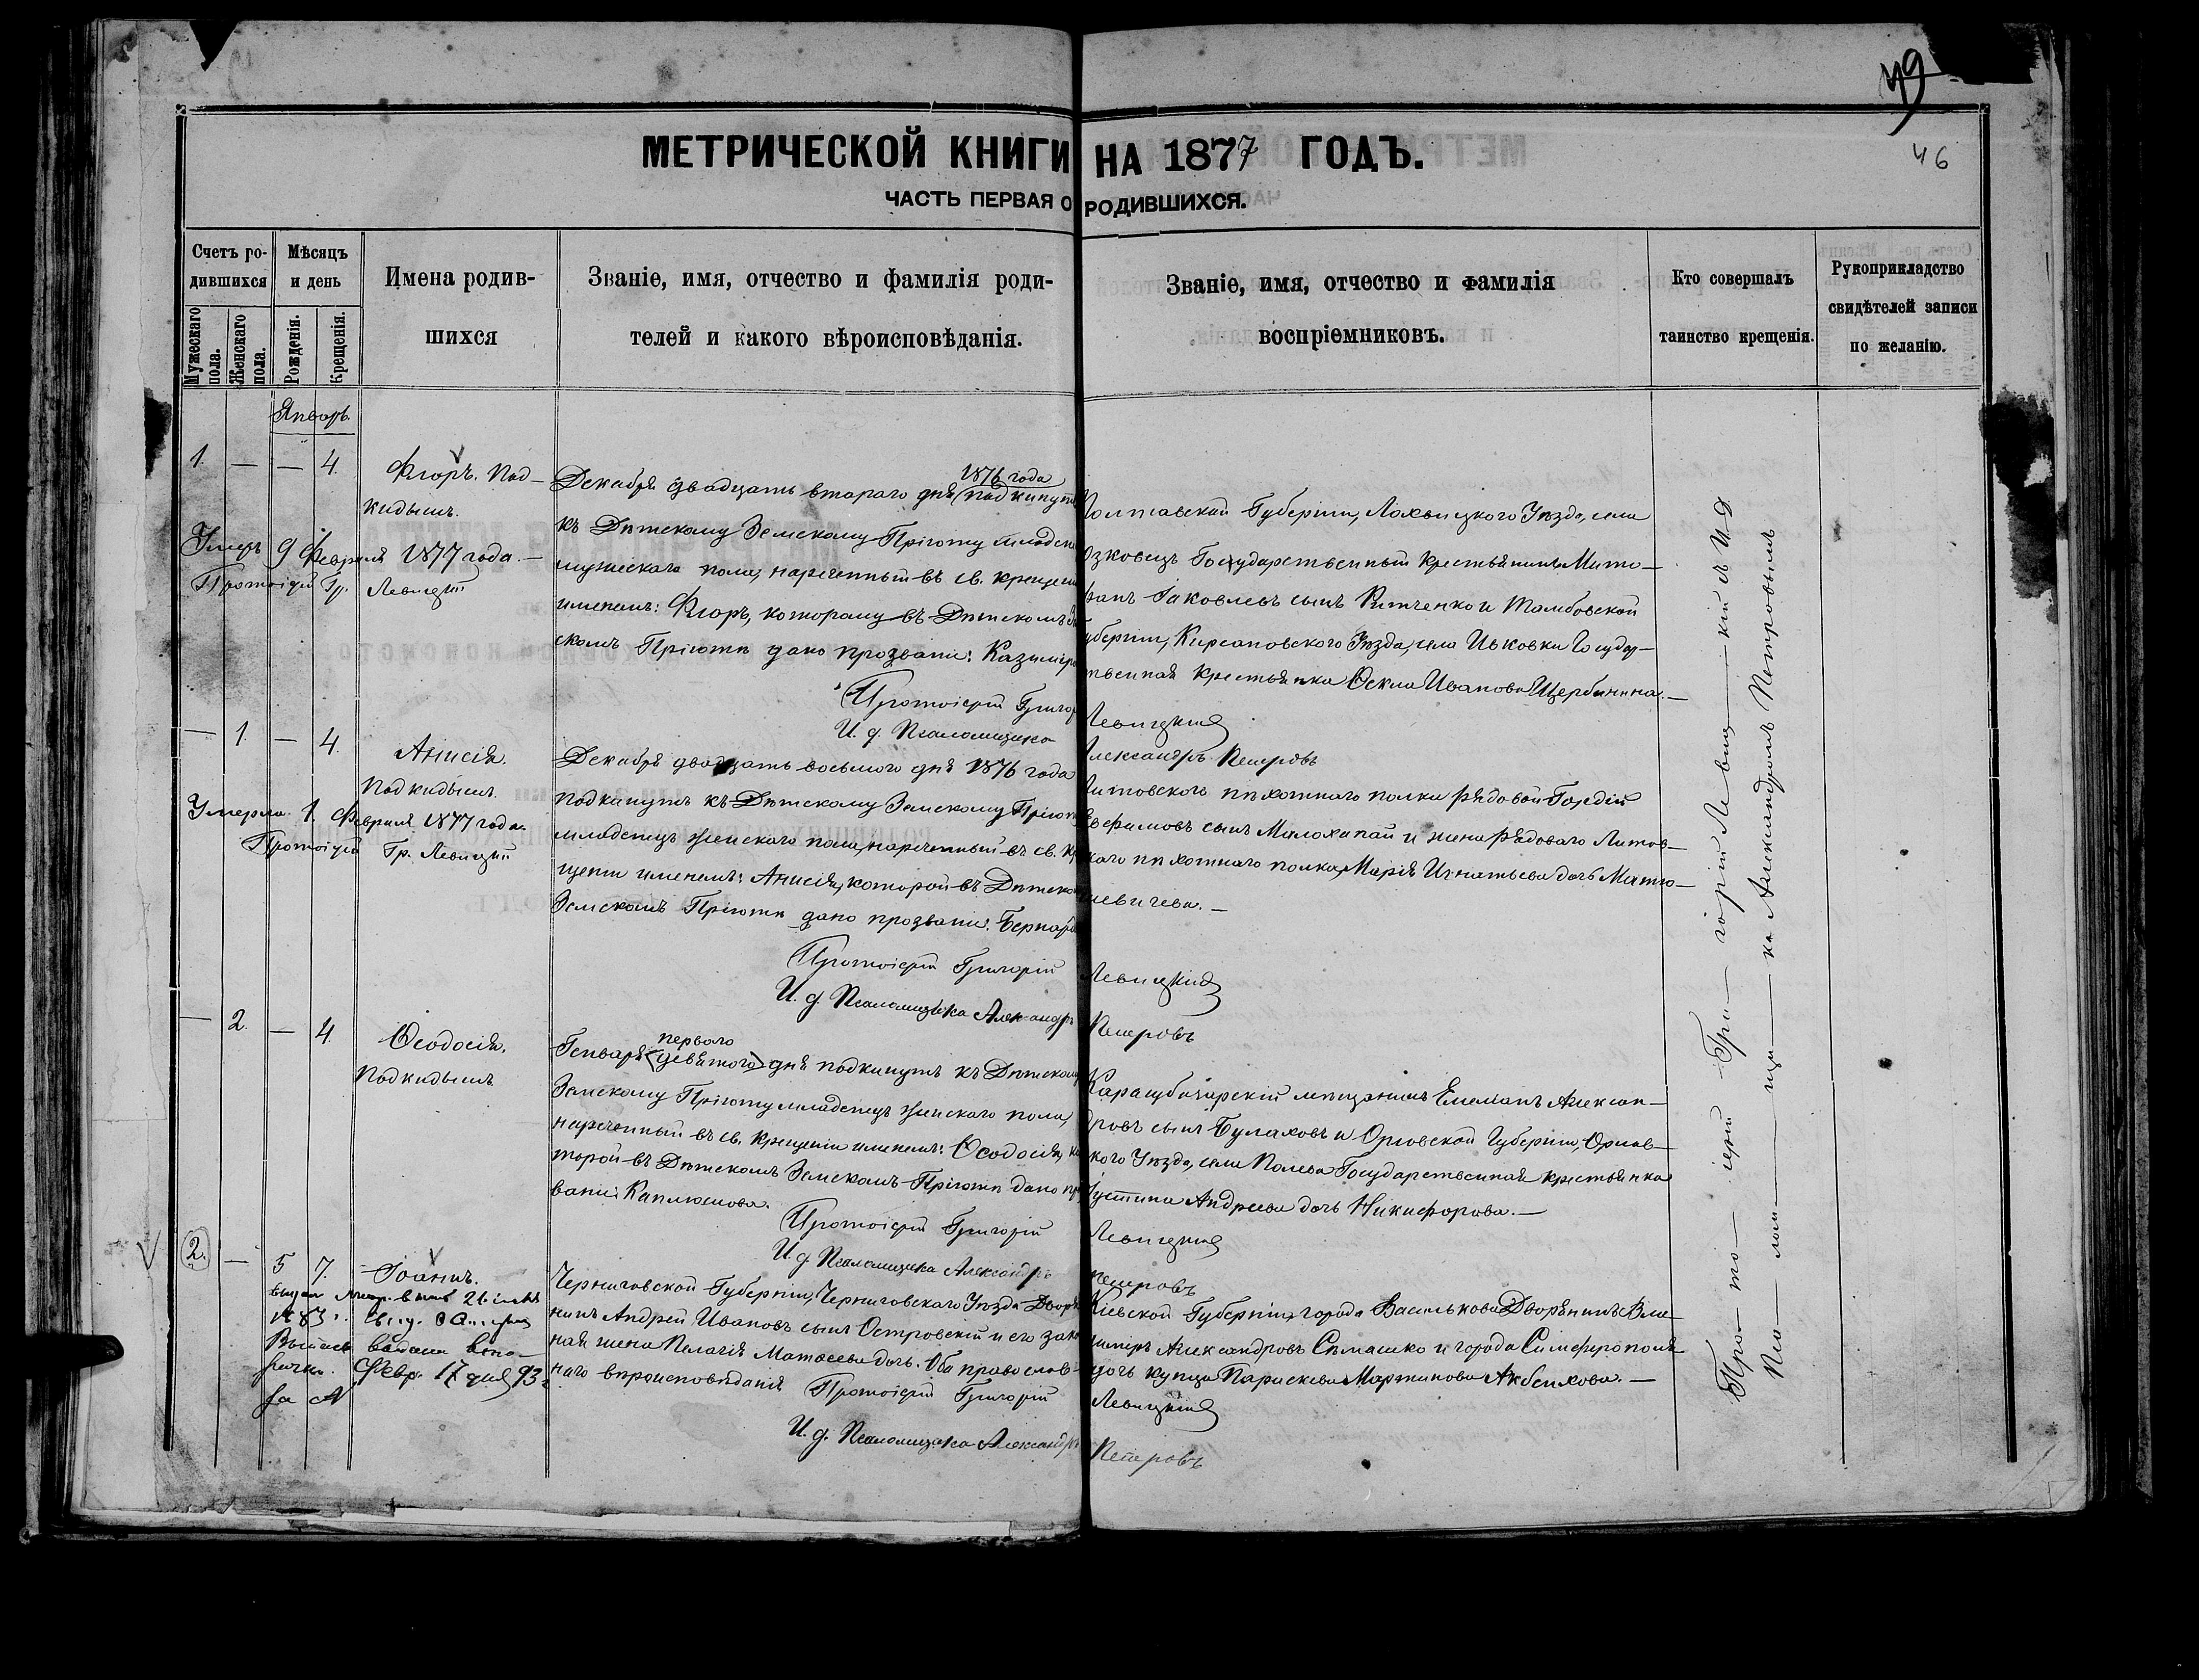 49
46
МЕТРИЧЕСКОЙ КНИГИ НА 1877 ГОДЪ.
ЧАСТЬ ПЕРВАЯ О РОДИВШИХСЯ.
Счетъ ро-
дившихся
Мужескаго пола.
Женскаго пола.
Мѣсяцъ
и день
Рожденія.
Крещенія.
Имена родив-
шихся
Званіе, имя, отчество и фамилія роди-
телей и какого вѣроисповѣданія.
Званіе, имя, отчество и фамилія
воспріемниковъ.
Кто совершалъ
таинство крещенія.
Рукоприкладство
свидѣтелей записи
по желанію.
Январь
1. — — 4.
Флоръ. Под-
кидышъ.
Умеръ 9 Февраля 1877 года. —
Протоіерей Гр. Левицкій
1876 года
Декабря двадцать втораго дня подкинут
къ Дѣтскому Земскому Пріюту младен
мужескаго пола, нареченный въ св. крещені
именемъ: Флоръ, которому въ Дѣтскомъ
скомъ Пріютѣ дано прозваніе: Казимір
Протоіерей Григор
И. д. Псаломщика
Полтавской Губерніи, Лохвицкого Уѣзда, села
озковецъ Государственный крестьянинъ Мито-
фанъ Іаковлевъ сынъ Ритченко и Тамбовской
уберніи, Кирсановского Уѣзда, села Ивковки Государ-
твенная крестьянка Ѳекла Иванова Щербинина. —
Левицкій
Александръ Петровъ
— 1. — 4.
Анисія.
Подкидышъ.
Умерла 1. Февраля 1877 года.
Протоіерей Гр. Левицкій
Декабря двадцать восьмого дня 1876 года
подкинутъ къ Дѣтскому Земскому Пріют
младенецъ женскаго пола, нареченный въ св. кр
щеніи именемъ: Анисія, которой въ Дѣтско
Земскомъ Пріютѣ дано прозваніе: Бернар
Протоіерей Григорій
И. д. Псаломщика Александръ
Литовского пѣхотнаго полка рядовой Гордій
Евфимовъ сынъ Малохатай и жена рядоваго Литов-
скаго пѣхотнаго полка, Марія Игнатьева дочь Матю-
шевичева. —
Левицкій
Петровъ
— 2. — 4.
Ѳеодосія.
Подкидышъ
перваго
Генваря (девятого) дня подкинутъ къ Дѣтском
Земскому Пріюту младенецъ женскаго пола,
нареченный въ св. крещеніи именемъ: Ѳеодосія, ко
торой въ Дѣтскомъ Земскомъ Пріютѣ дано пр
ваніе: Каплюшова.
Протоіерей Григорій
И. д. Псаломщика Александръ
Карасубазарскій мѣщанинъ Емеліанъ Алексан-
дровъ сынъ Булаховъ и Орловской Губерніи, Орлов-
кого Уѣзда, села Полева Государственная крестьянка
Іустина Андреева дочь Никифорова. —
Левицкій
Петровъ
2. — 5 7.
Іоаннъ.
1883 г.
Февр. 17 дня 93
Черниговской Губерніи, Черниговскаго Уѣзда Дворя
нинъ Андрей Ивановъ сынъ Островскій и его зако
ная жена Пелагія Матѳеева дочь. Оба православ-
наго вѣроисповѣданія
Протоіерей Григорій
И. д. Псаломщика Александръ
Кіевской Губерніи, города Василькова Дворянинъ Вла-
диміръ Александровъ Сѣмашко и города Симферополя
дочь купца Параскева Мартинова Акбсихова. —
Левицкій
Петровъ
Про— то— іерей — Гри— горій Левиц— кій съ И. Д.
Пса— лом— щи— ка Александромъ Петровымъ